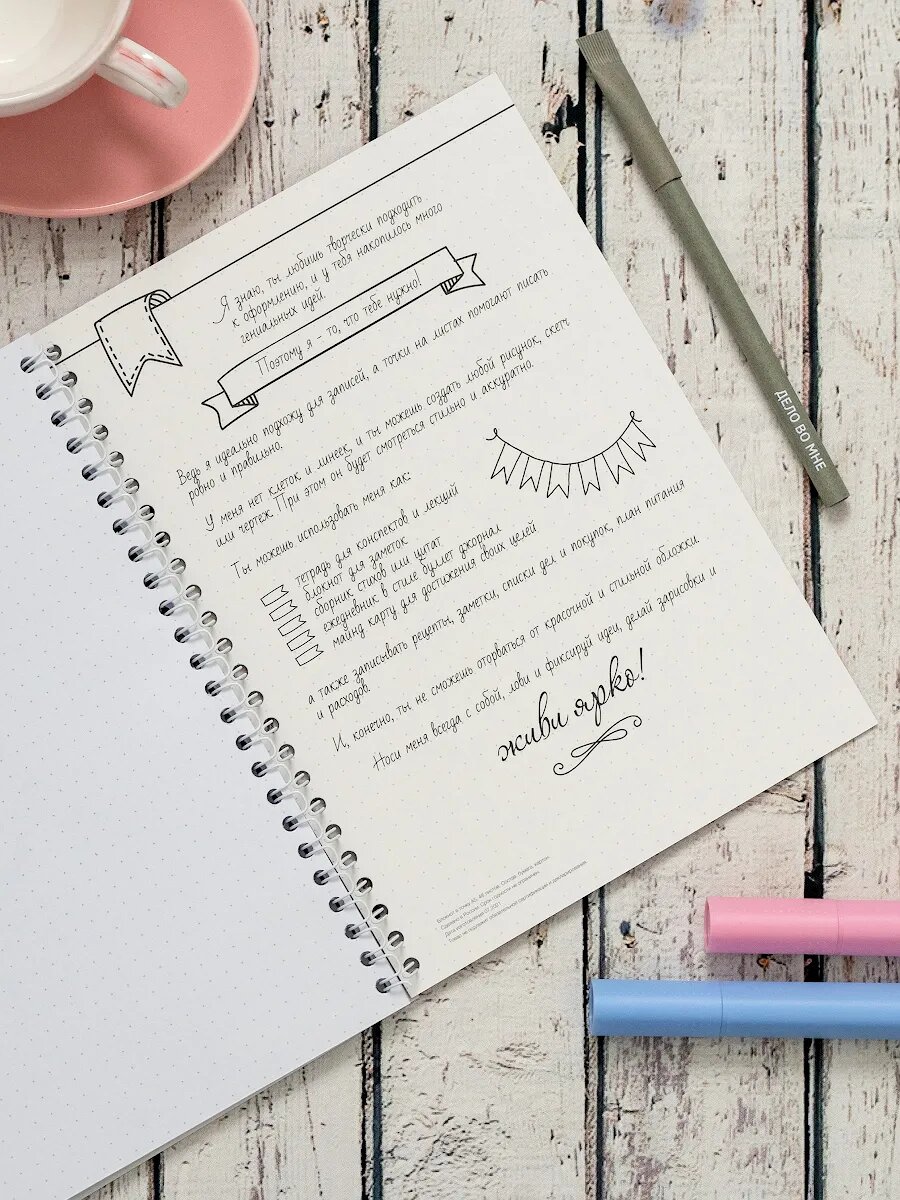 Я знаю, ты любишь творчески подходить
к оформлению, и у тебя накопилось много
гениальных идей.
Поэтому я - то, что тебе нужно!
Ведь я идеально подхожу для записей, а точки на листах помогают писать
ровно и правильно.
У меня нет клеток и линеек, и ты можешь создать любой рисунок, скетч
или чертеж. При этом он будет смотреться стильно и аккуратно.
Ты можешь использовать меня как:
тетрадь для конспектов и лекций
блокнот для заметок
сборник стихов или цитат
ежедневник в стиле буллет джорнал
майнд карту для достижения своих целей
а также записывать рецепты, заметки, списки дел и покупок, план питания
и расходов.
И, конечно, ты не сможешь оторваться от красочной и стильной обложки.
Носи меня всегда с собой, лови и фиксируй идеи, делай зарисовки и
живи ярко!
Блокнот в точку А5, 48 листов. Состав: бумага, картон.
Сделано в России. Срок годности не ограничен.
Дата изготовления: 2021
Товар не подлежит обязательной сертификации и декларированию
ДЕЛО ВО МНЕ